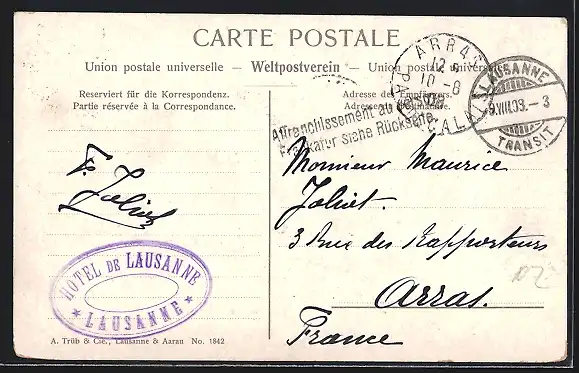 CARTE POSTALE
Union postale universelle – Weltpostverein – Union postale universelle
Reserviert für die Korrespondenz.
Partie réservée à la Correspondance.
Adresse des Empfängers.
Adresse du Destinataire.
Affranchissement au verso
Frankatur Siehe Rückseite
ARRAS
12
10 - 8
PAS CALAIS
LAUSANNE
9.VIII.08. – 3
TRANSIT
F. Joliet
Monsieur Maurice
Joliet.
3 Rue des Rapporteurs
Arras.
France
HOTEL DE LAUSANNE
★ LAUSANNE ★
A. Trüb & Cie., Lausanne & Aarau No. 1842